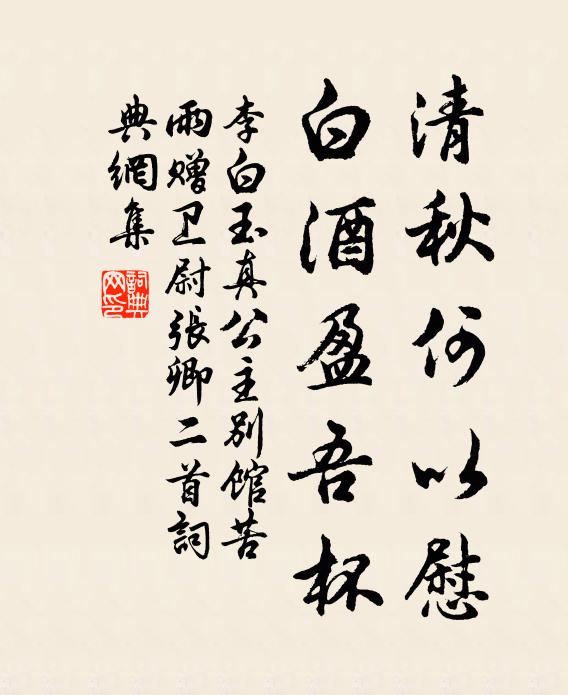 清秋何以慰
白酒盈吾杯
李白玉真公主別館苦
雨贈卫尉張卿二首詞
典網集
詞典网印